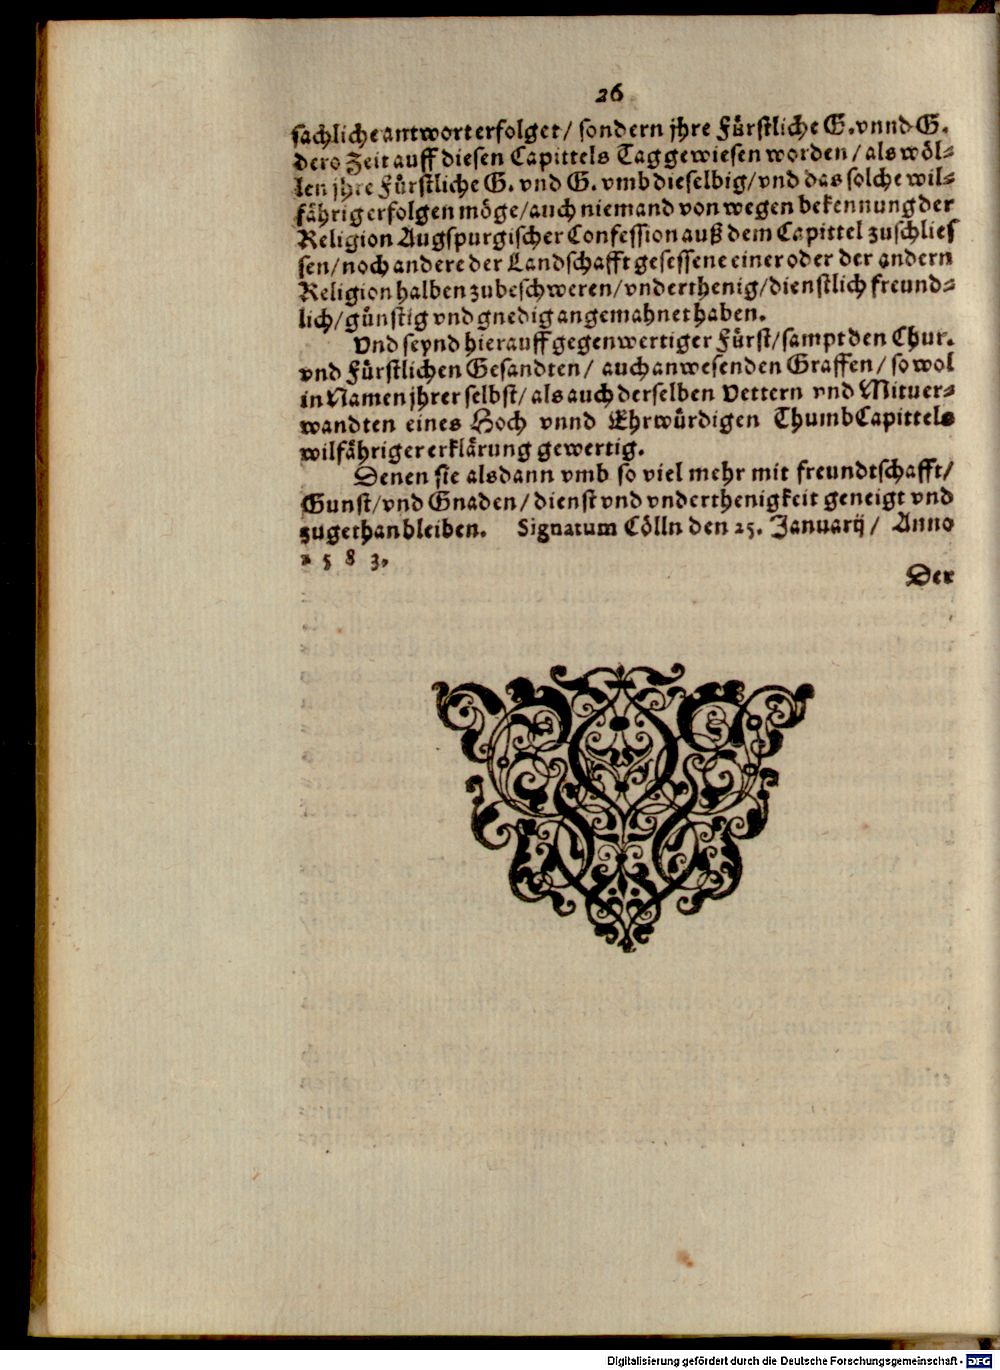 26
sachliche antwort erfolget/ sondern jhre Fürstliche G. vnnd G.
dero Zeit auff diesen Capittels Tag gewiesen worden/ als wöl-
len jhre Fürstliche G. vnd G. vmb dieselbig/ vnd das solche wil-
fährig erfolgen möge/ auch niemand von wegen bekennung der
Religion Augspurgischer Confession auß dem Capittel zuschlies
sen/ noch andere der Landschafft gesessene einer oder der andern
Religion halben zubeschweren/ vnderthenig/ dienstlich freund-
lich/ günstig vnd gnedig angemahnet haben.
Vnd seynd hierauff gegenwertiger Fürst/ sampt den Chur.
vnd Fürstlichen Gesandten/ auch anwesenden Graffen/ so wol
in Namen jhrer selbst/ als auch derselben Vettern vnd Mituer-
wandten eines Hoch vnnd Ehrwürdigen ThumbCapittels
wilfähriger erklärung gewertig.
Denen sie alsdann vmb so viel mehr mit freundtschafft/
Gunst/ vnd Gnaden/ dienst vnd vnderthenigkeit geneigt vnd
zugethan bleiben. Signatum Cölln den 25. Januarij/ Anno
1583.
Der
Digitalisierung gefördert durch die Deutsche Forschungsgemeinschaft - DFG